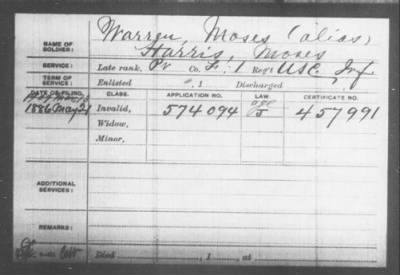 Warren, Moses (alias)
NAME OF SOLDIER: Harris, Moses
SERVICE: Late rank, Pv Co. F. 1 Reg't USC Inf.
TERM OF SERVICE: Enlisted , 1 Discharged , 1
DATE OF FILING. CLASS. APPLICATION NO. LAW. CERTIFICATE NO.
1886 May 21 Invalid, 574094 457991
Widow,
Minor,
ADDITIONAL SERVICES:
REMARKS:
Died , 1 , at